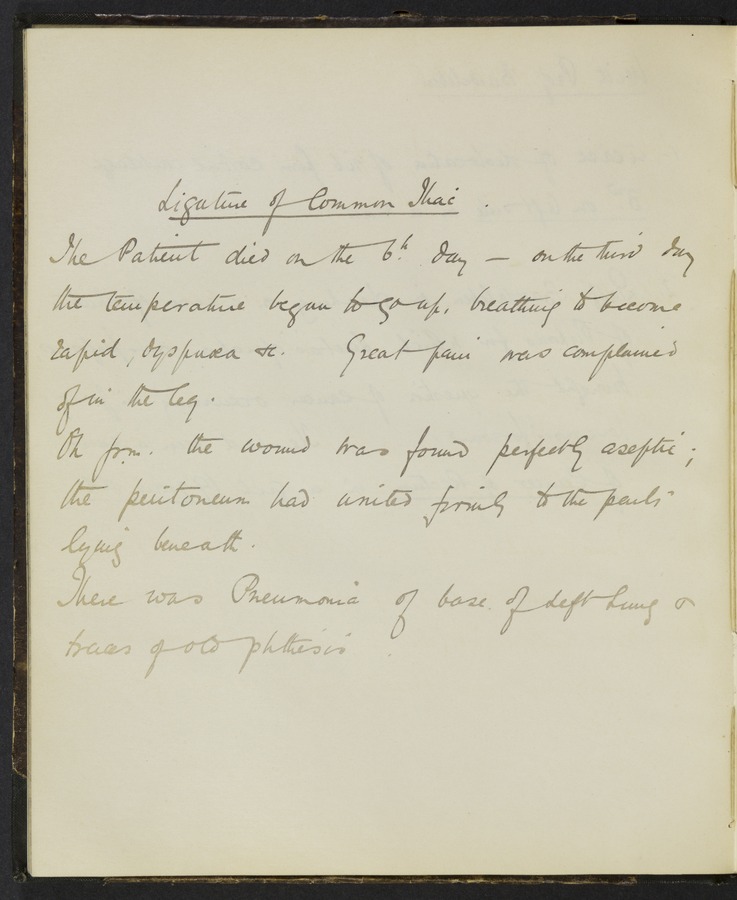 Ligature of Common Iliac.
The Patient died on the 6th day — on the third day
the temperature began to go up, breathing to become
rapid, dyspnoea &c. Great pain was complained
of in the leg.
On p.m. the wound was found perfectly aseptic;
the peritoneum had united firmly to the parts
lying beneath.
There was Pneumonia of base of Left Lung &
traces of old phthisis